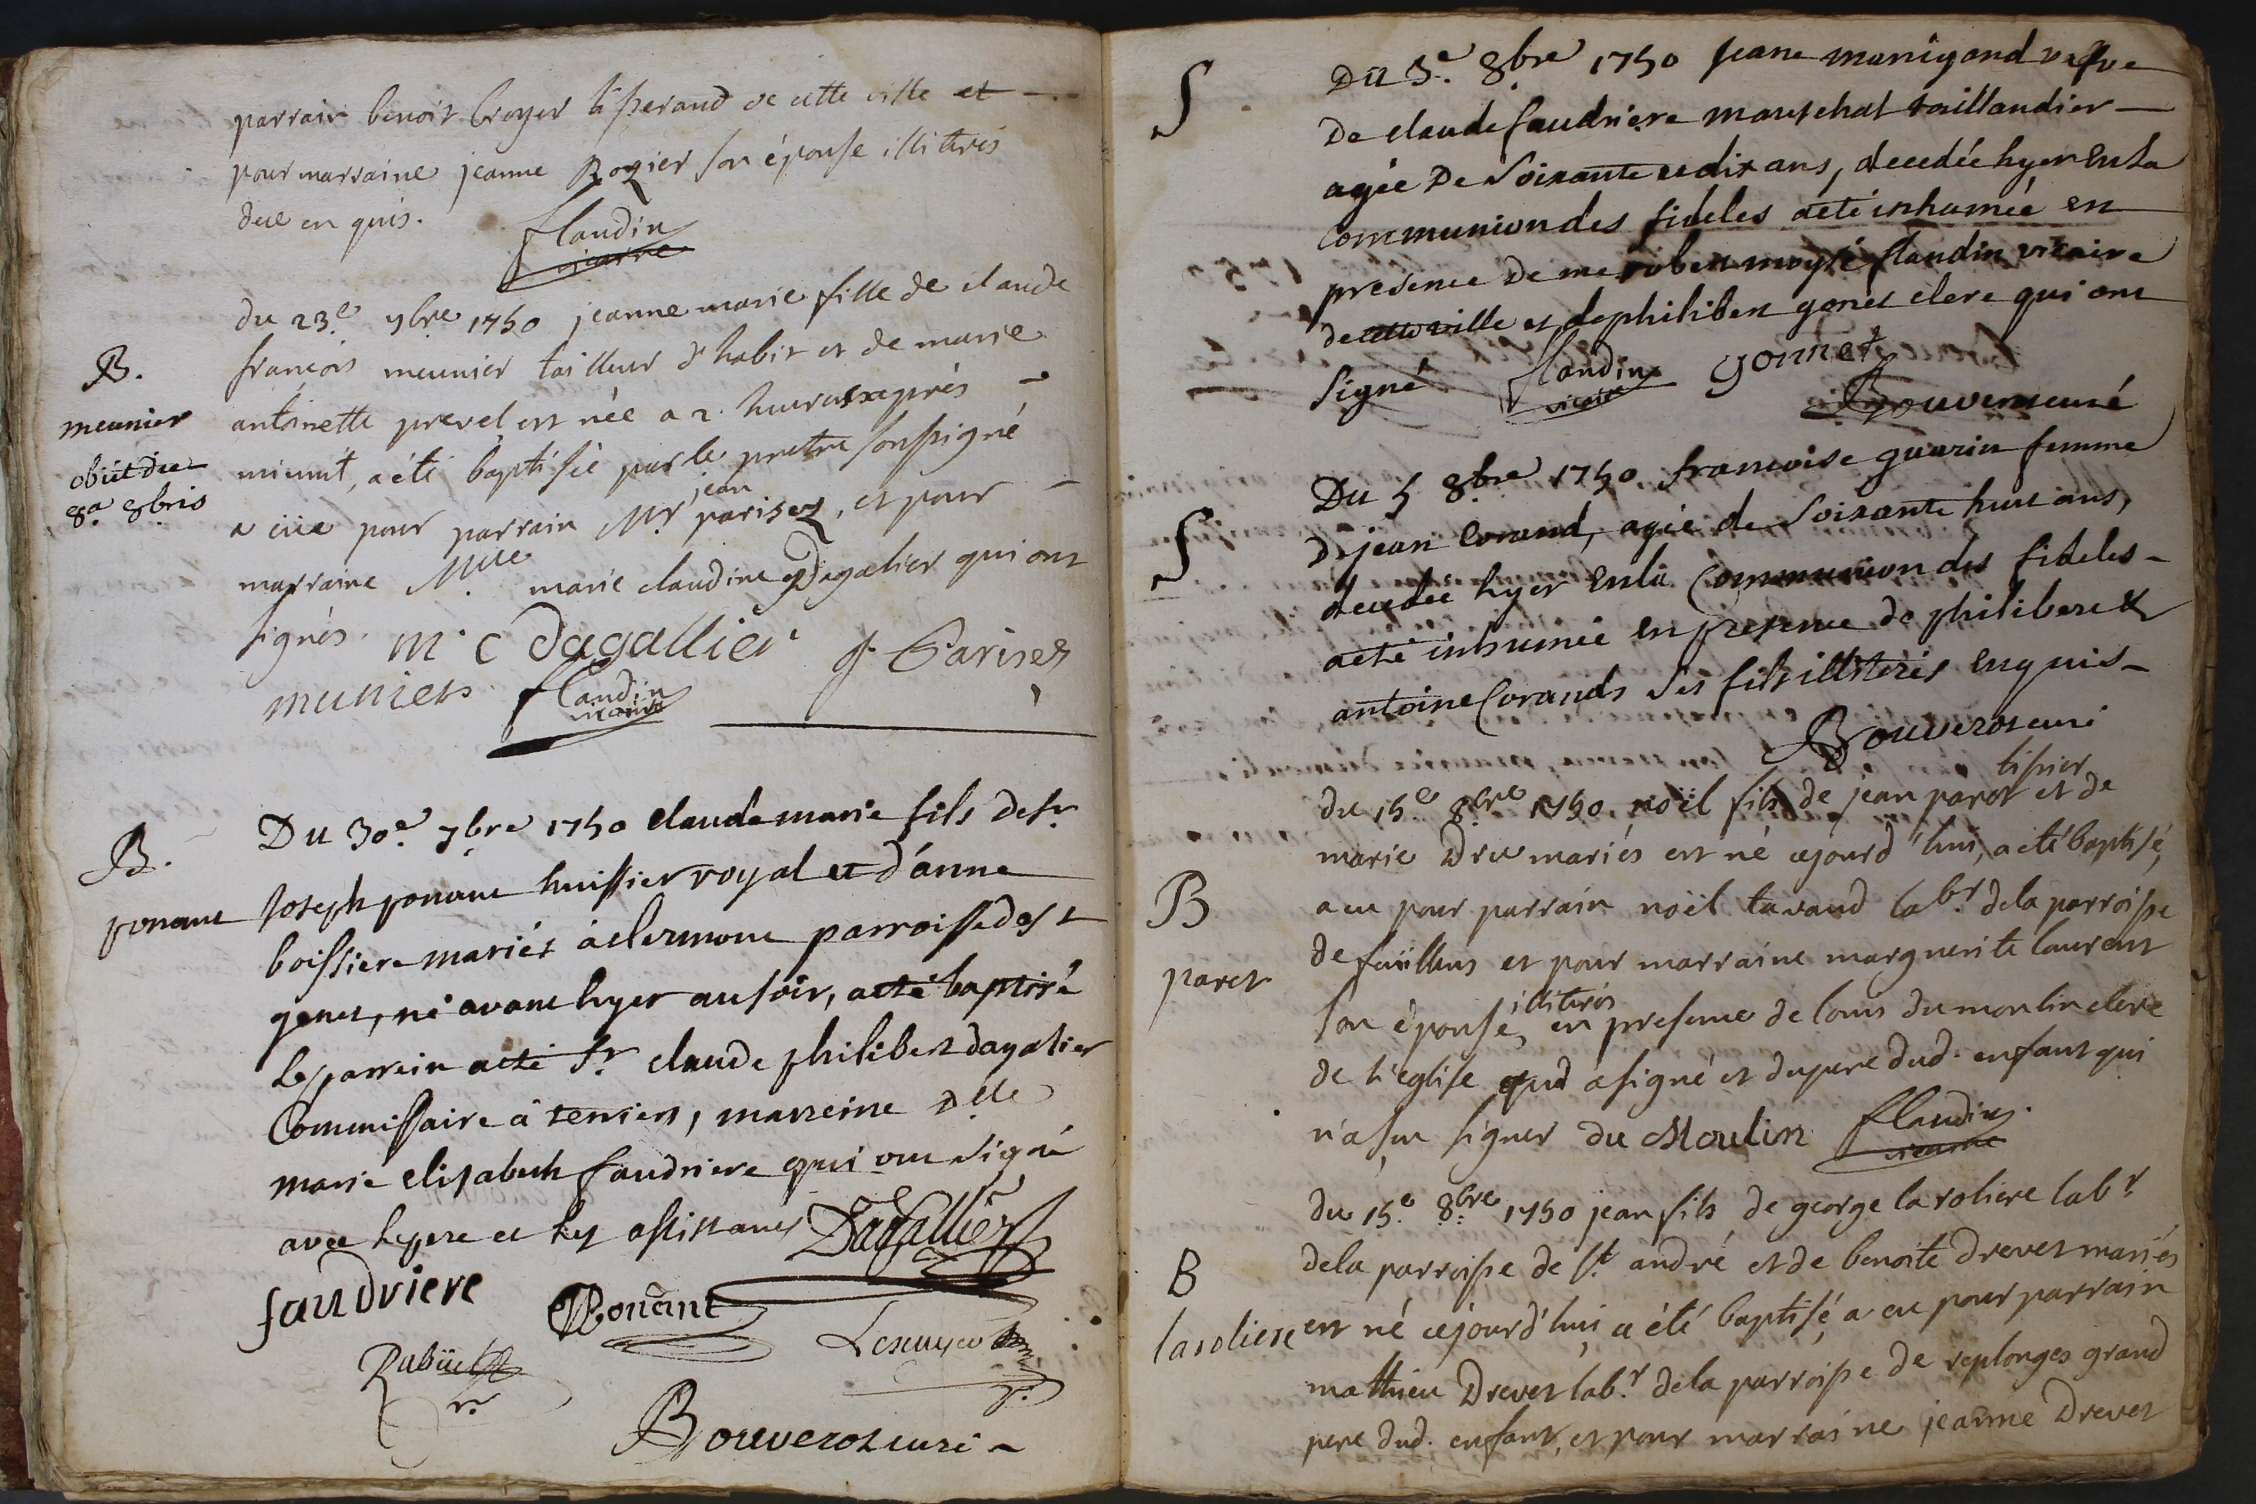 parrain benoit broyer tisserand de cette ville et
pour marraine jeanne Rozier son épouse illiterés
de ce enquis.
flandin
vicaire
B.
meunier
obiit die
8a 8bris
du 23e 7bre 1750 jeanne marie fille de claude
françois meunier tailleur d'habit et de marie
antoinette prevel est née a 2. heures après
minuit, a été baptisée par le pretre soussigné
a eüe pour parrain Mr jean parisez, et pour
marraine Mlle marie claudine Dagalier qui ont
signés. m c Dagallier J. Parisez
muniers flandin
vicaire
B.
ponant
Du 30e 7bre 1750 claude marie fils de sr
Joseph ponant huissier royal et d'anne
boissiere mariés à clermont parroisse de st
genes, né avant hyer au soir, a eté baptisé
Le parrein a eté Sr claude philibert dagalier
Commissaire à terriers, marreine Dlle
marie elisabeth faudriere qui ont signé
avec le pere et les assistants Dagallier
faudriere Ponant
Rubüet
Bouverot curé
S
Dü 3e 8bre 1750 Jeane manigand vefve
De claude faudriere mareschal taillandier
agée De Soixante et dix ans, decedée hyer En La
communion des fideles a eté inhumée en
presence De me robert moyse flandin vicaire
de cette ville et de philibert gonet clerc qui ont
Signé flandin gonnet
vicaire
Bouverot curé
S
Du 5 8bre 1750 francoise guerin femme
D jean Corand, agée de Soixante huit ans,
decedée hyer En la Communion des fideles
a eté inhumée En presence de philibert &
antoine Corands ses fils illiterés Enquis
Bouverot curé
B
paret
du 15e 8bre 1750. noël fils de jean paret tissier et de
marie Dru mariés est né cejourd'hui, a eté baptisé,
a eu pour parrain noël tavaud labr de la parroisse
de feüillens et pour marraine marguerite laurent
son épouse illiterés en presence de louis dumoulin clerc
de l'église qui a signé et du pere dud. enfant qui
n'a sçu signer du Moulin flandin
vicaire
B
laroliere
du 15e 8bre 1750 jean fils de george la roliere labr
de la parroisse de st andré et de benoite Drevet mariés
est né cejourd'hui, a été baptisé, a eu pour parrain
mathieu Drevet labr de la parroisse de replonges grand
pere dud. enfant, et pour marraine jeanne Drevet